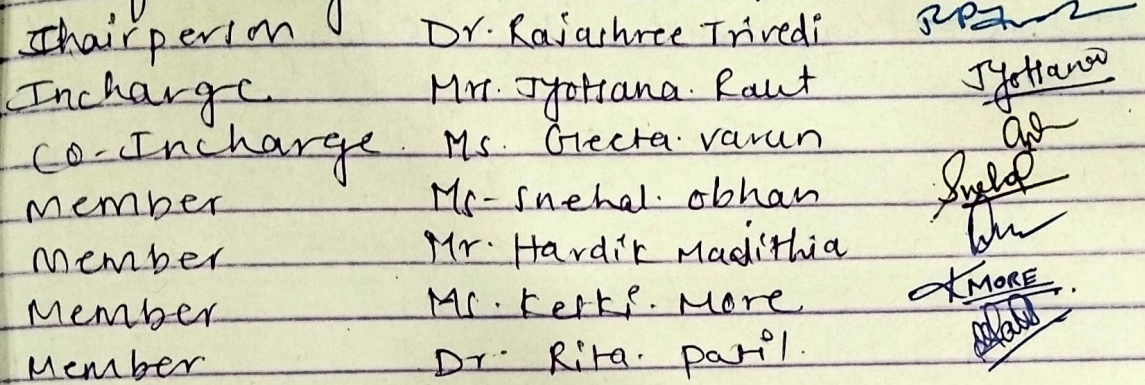 Chairperson Dr. Rajashree Trivedi
Incharge Mrs. Jyotsana. Raut Jyotsana
Co-Incharge. Ms. Geeta. varun
Member Ms- Snehal. obhan Snehal
Member Mr. Hardik Madithia
Member Ms. Ketki. More KMORE.
Member Dr. Rita. patil.